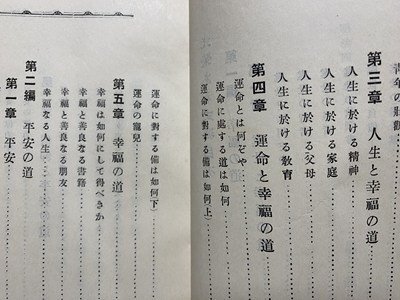 青年の壯觀
第三章　人生と幸福の道
人生に於ける精神
人生に於ける家庭
人生に於ける父母
人生に於ける敎育
第四章　運命と幸福の道
運命とは何ぞや
運命に處する道は如何
運命に對する備は如何(上)
運命に對する備は如何(下)
運命の寵兒
第五章　幸福の道
幸福は如何にして得べきか
幸福と善良なる書籍
幸福と善良なる朋友
幸福なる人生
第二編　平安の道
第一章　平安